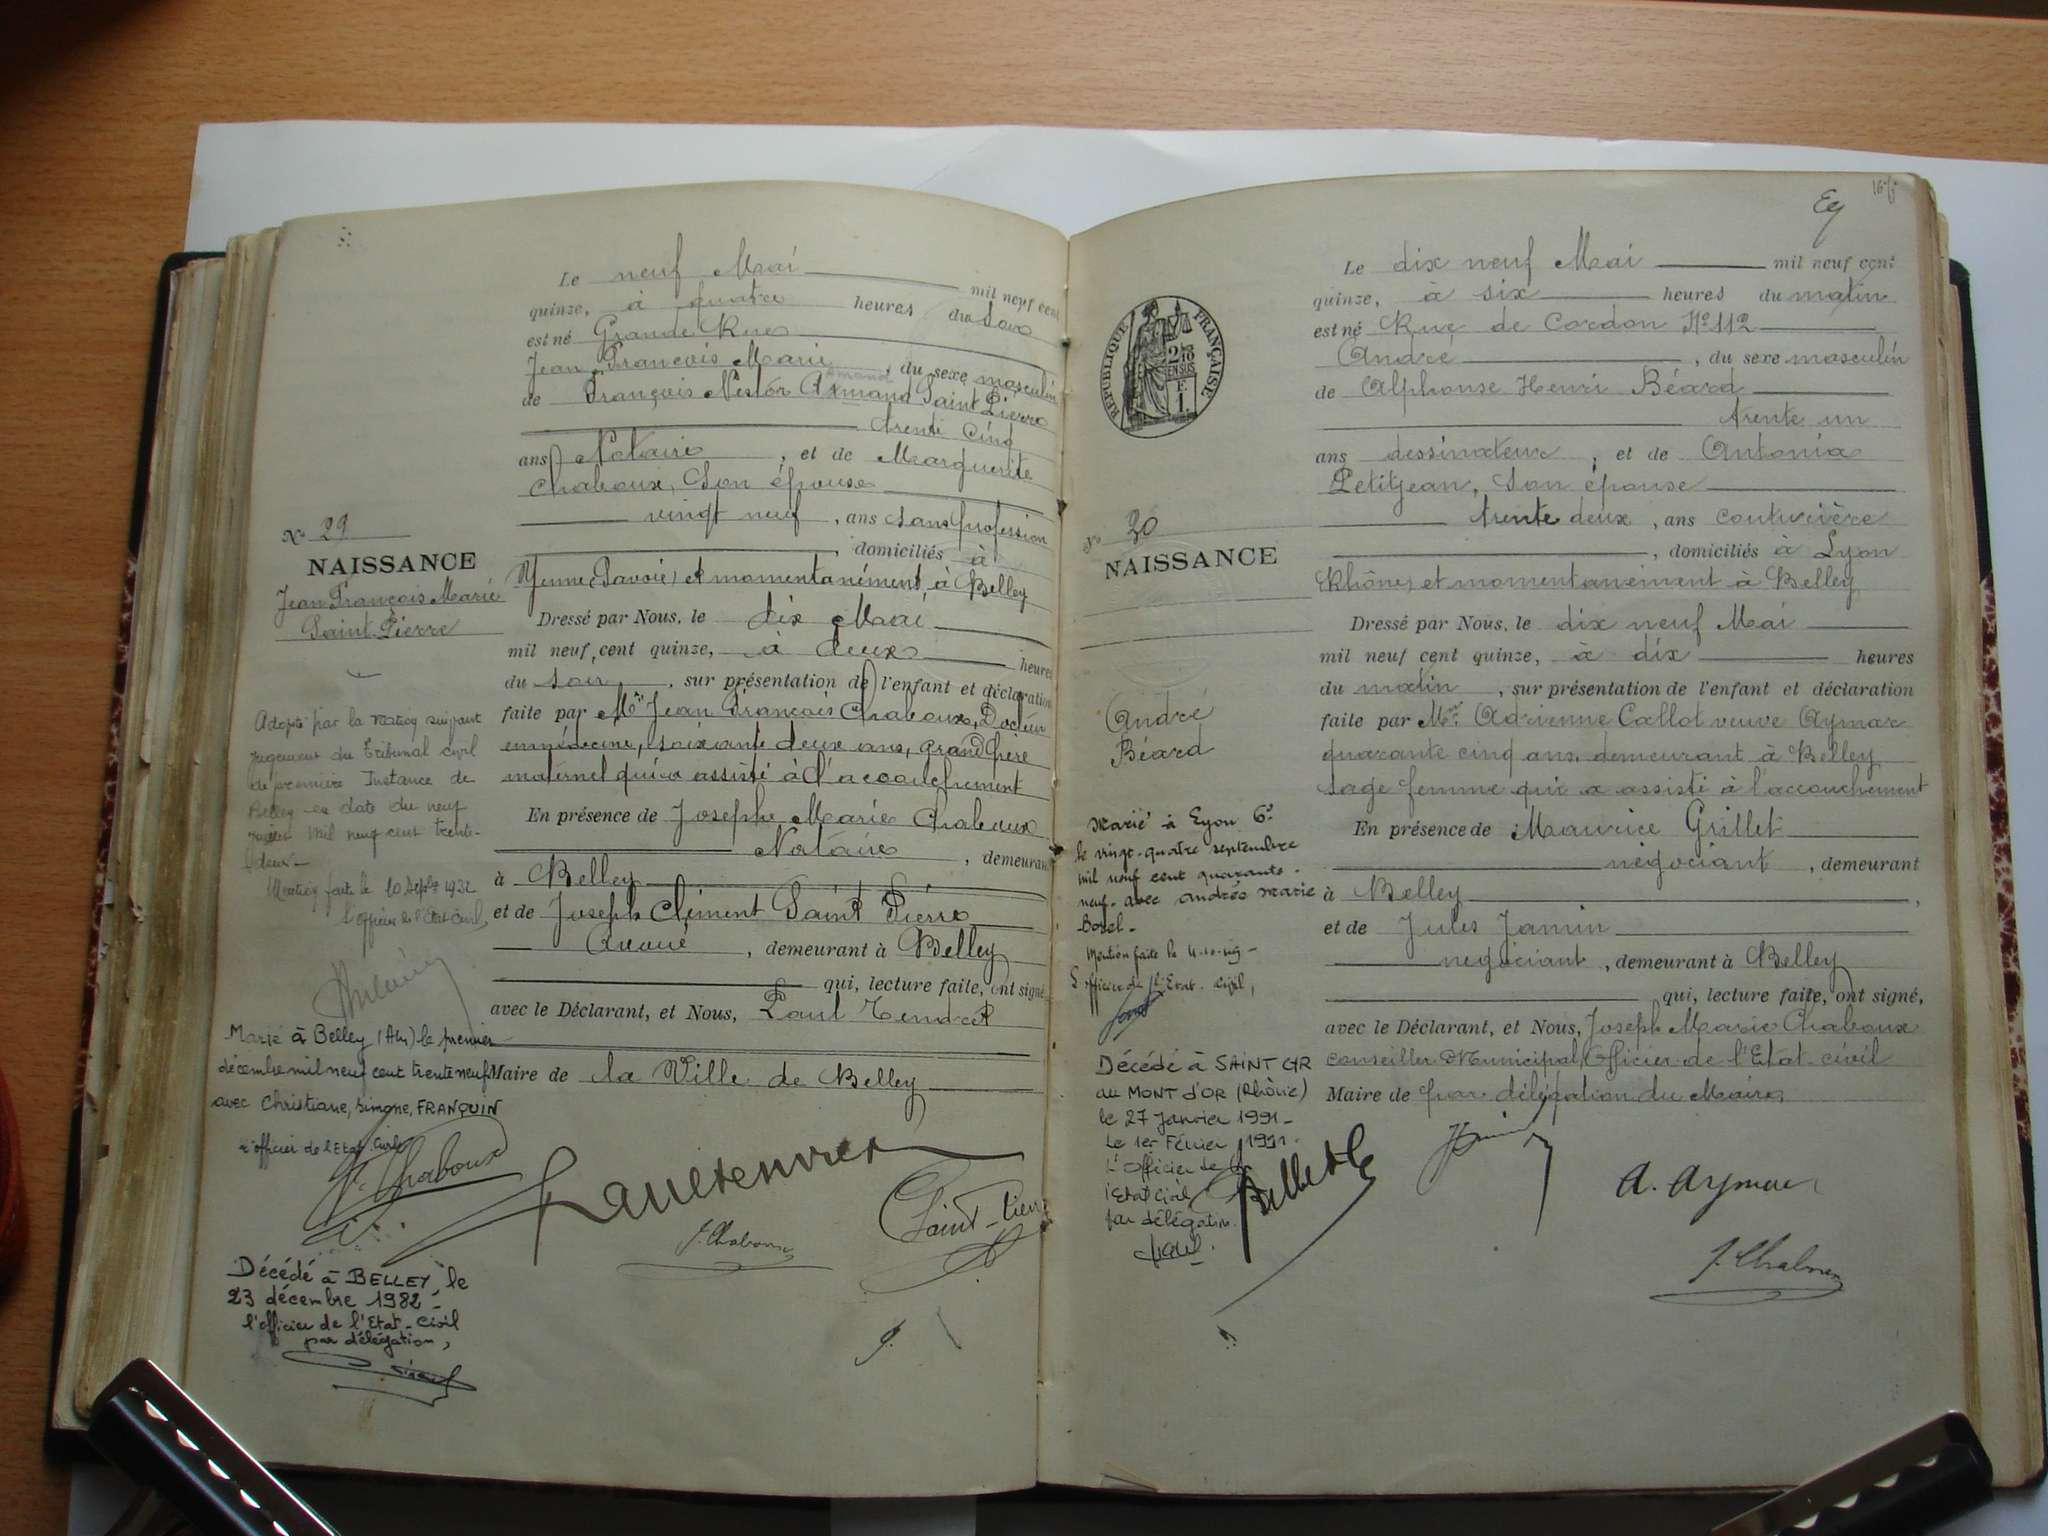 Le neuf Mai mil neuf cent
quinze, à quatre heures du soir
est né Grande Rue
Jean François Marie, du sexe masculin
de François Nestor Armand Saint Pierre
Amand
trente cinq
ans Notaire, et de Marguerite
Chaboux, Son épouse
vingt neuf, ans sans profession
domiciliés à
Yenne (Savoie) et momentanément à Belley
Dressé par Nous, le dix Mai
mil neuf cent quinze, à deux heures
du soir, sur présentation de l'enfant et déclaration
faite par Mr Jean François Chaboux, Docteur
en médecine, soixante deux ans, grand père
maternel qui a assisté à l'accouchement
En présence de Joseph Marie Chaboux
Notaire, demeurant
à Belley
et de Joseph Clément Saint Pierre
Avoué, demeurant à Belley
qui, lecture faite, ont signé
avec le Déclarant, et Nous, Paul Tendret
Maire de la Ville de Belley
No 29
NAISSANCE
Jean François Marie
Saint Pierre
Adopté par la Nation suivant
jugement du Tribunal civil
de première Instance de
Belley en date du neuf
mil neuf cent trente-
deux-
Mention faite le 10 Septbre 1932
l'officier de l'Etat Civil,
Marié à Belley (Ain) le premier
décembre mil neuf cent trente neuf
avec Christiane, Simone, FRANQUIN
L'officier de l'Etat Civil
Chaboux
Paul Tendret
J. Chaboux
Saint-Pierre
Décédé à BELLEY, le
23 décembre 1982-
l'officier de l'Etat-Civil
par délégation,
Le dix neuf Mai mil neuf cent
quinze, à six heures du matin
est né Rue de Cordon No 112
André, du sexe masculin
de Alphonse Henri Béard
trente un
ans dessinateur, et de Antonia
Petitjean, Son épouse
trente deux, ans couturière
, domiciliés à Lyon
(Rhône) et momentanément à Belley
Dressé par Nous, le dix neuf Mai
mil neuf cent quinze, à dix heures
du matin, sur présentation de l'enfant et déclaration
faite par Mme Adrienne Callot veuve Aymar
quarante cinq ans, demeurant à Belley
sage femme qui a assisté à l'accouchement
En présence de Maurice Grillet
négociant, demeurant
à Belley,
et de Jules Jamin
négociant, demeurant à Belley
qui, lecture faite, ont signé,
avec le Déclarant, et Nous, Joseph Marie Chaboux
Conseiller Municipal Officier de l'Etat-civil
Maire de par délégation du Maire
RÉPUBLIQUE FRANÇAISE
No 30
NAISSANCE
André
Béard
Marié à Lyon 6e
le vingt-quatre septembre
mil neuf cent quarante-
neuf- avec Andrée Marie
Borel-
Mention faite le
L'officier de l'Etat-Civil,
Décédé à SAINT CYR
au MONT d'OR (Rhône)
le 27 Janvier 1991-
Le 1er Février 1991-
L'Officier de
l'Etat Civil
par délégation
A. Aymar
J. Chaboux